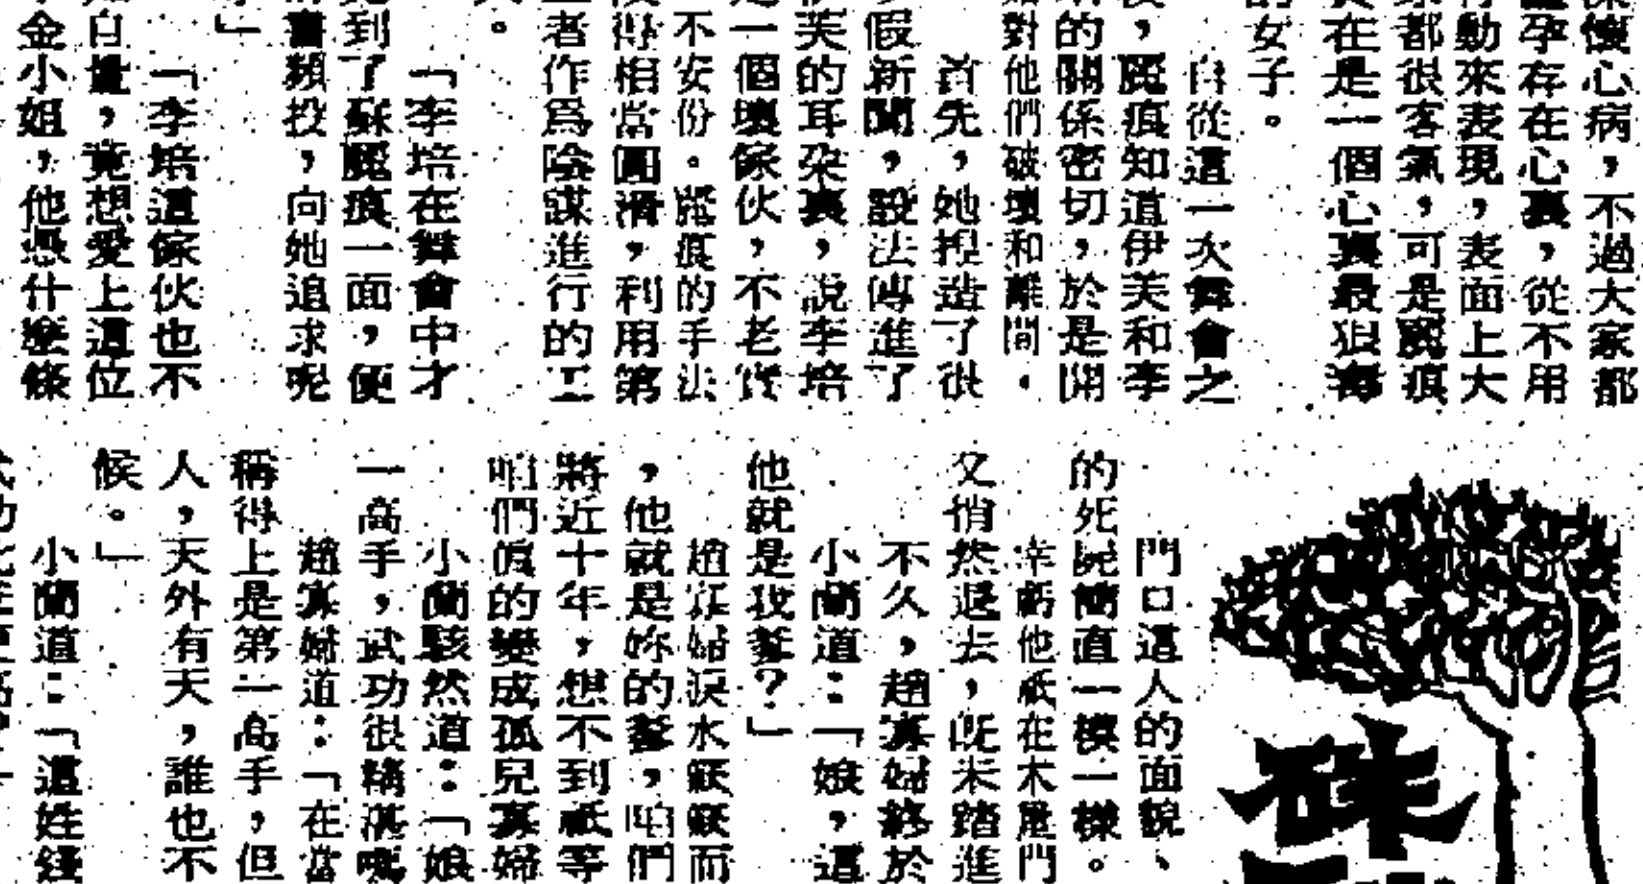 深懷心病，不過大家都
孕存在心裏，從不用
動來表現，表面上大
都很客氣，可是麗痕
在是一個心裏最狠毒
的女子。
自從這一次舞會之
，麗痕知道伊芙和李
的關係密切，於是開
對他們破壞和離間．
首先，她捏造了很
假新聞，設法傳進了
芙的耳朵裏，說李培
一個壞傢伙，不老實
不安份。麗痕的手法
得相當圓滑，利用第
者作爲陰謀進行的工
。
「李培在舞會中才
到了蘇麗痕一面，便
書頻投，向她追求呢
」
「李培這傢伙也不
自量，竟想愛上這位
金小姐，他憑什麼條
門口這人的面貌、
的死屍簡直一模一樣。
幸虧他祇在木屋門
又悄然退去，旣未踏進
不久，趙寡婦終於
小蘭道：「娘，這
他就是我爹？」
趙寡婦淚水簌簌而
，他就是妳的爹，咱們
將近十年，想不到祇等
咱們眞的變成孤兒寡婦
小蘭駭然道：「娘
一高手，武功很精湛嗎
趙寡婦道：「在當
稱得上是第一高手，但
人，天外有天，誰也不
候。」
小蘭道：「這姓錢